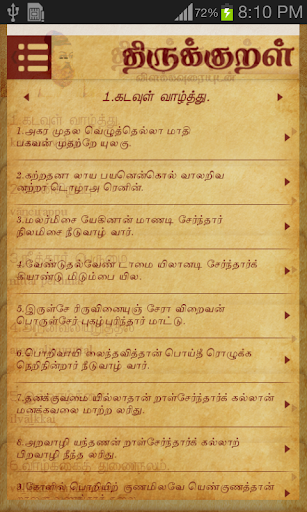 72% 8:10 PM
திருக்குறள்
1.கடவுள் வாழ்த்து.
1.அகர முதல வெழுத்தெல்லா மாதி
பகவன் முதற்றே யுலகு.
2.கற்றதனா லாய பயனென்கொல் வாலறிவ
னற்றா டொழாஅ ரெனின்.
3.மலர்மிசை யேகினான் மாணடி சேர்ந்தார்
நிலமிசை நீடுவாழ் வார்.
4.வேண்டுதல்வேண் டாமை யிலானடி சேர்ந்தார்க்
கியாண்டு மிடும்பை யில.
5.இருள்சே ரிருவினையுஞ் சேரா விறைவன்
பொருள்சேர் புகழ்புரிந்தார் மாட்டு.
6.பொறிவாயி லைந்தவித்தான் பொய்தீ ரொழுக்க
நெறிநின்றார் நீடுவாழ் வார்.
7.தனக்குவமை யில்லாதான் றாள்சேர்ந்தார்க் கல்லான்
மனக்கவலை மாற்ற லரிது.
8.அறவாழி யந்தணன் றாள்சேர்ந்தார்க் கல்லாற்
பிறவாழி நீந்த லரிது.
9.கோளில் பொறியிற் குணமிலவே யெண்குணத்தான்